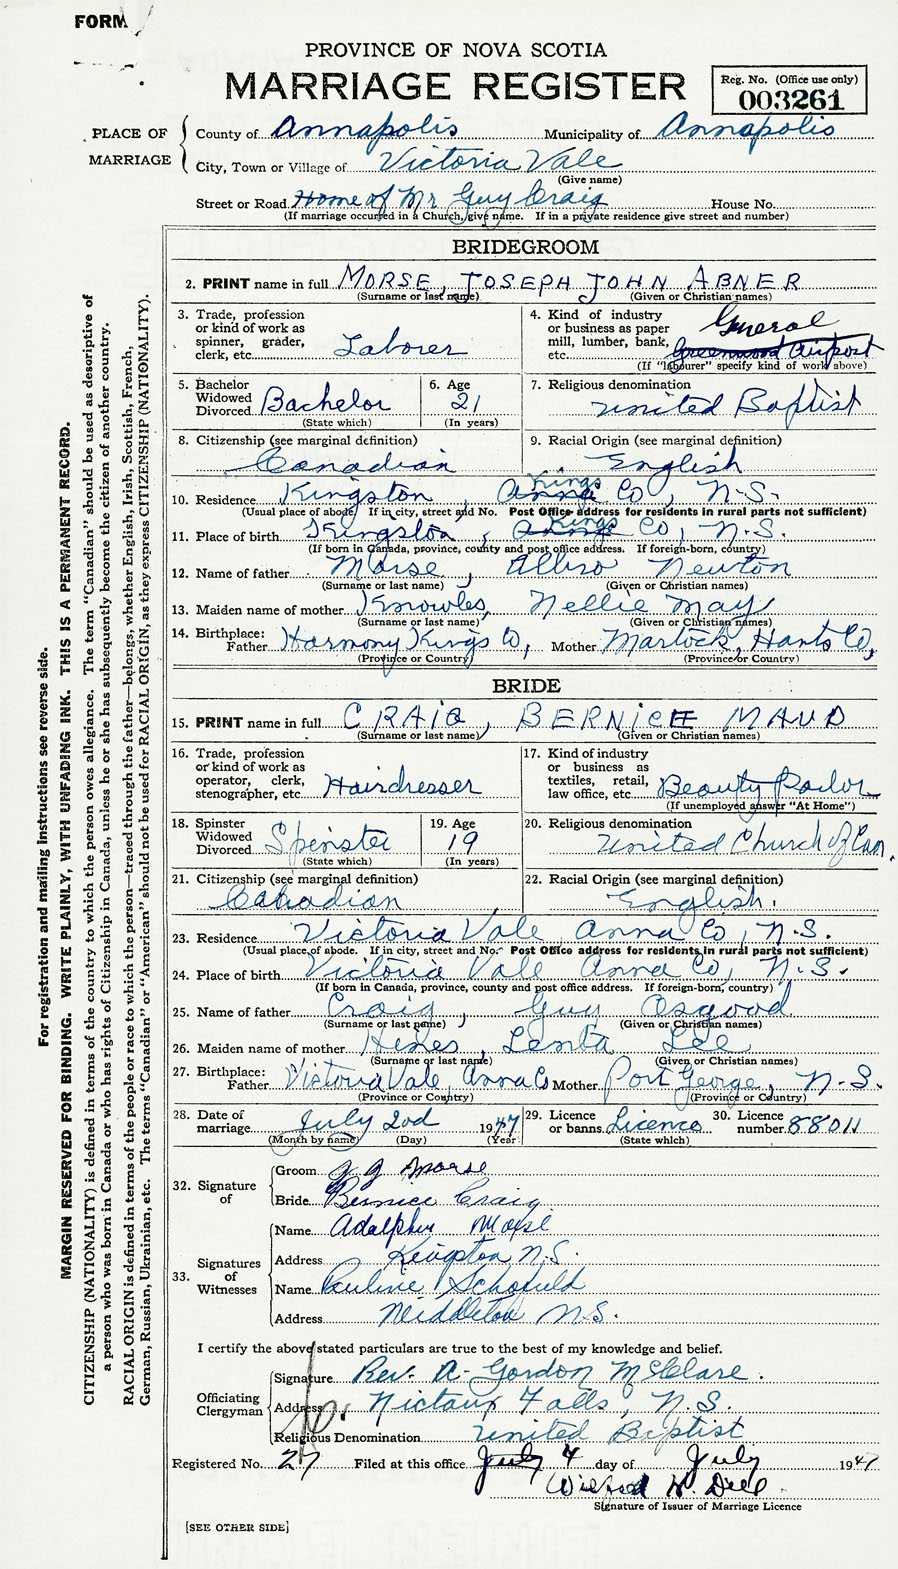 FORM
PROVINCE OF NOVA SCOTIA
MARRIAGE REGISTER
Reg. No. (Office use only)
003261
PLACE OF MARRIAGE
County of Annapolis Municipality of Annapolis
City, Town or Village of Victoria Vale
(Give name)
Street or Road Home of Mr Guy Craig House No.
(If marriage occurred in a Church, give name. If in a private residence give street and number)
BRIDEGROOM
2. PRINT name in full MORSE, JOSEPH JOHN ABNER
(Surname or last name) (Given or Christian names)
3. Trade, profession or kind of work as spinner, grader, clerk, etc. Laborer
4. Kind of industry or business as paper mill, lumber, bank, etc. General
Greenwood Airport
(If "labourer" specify kind of work above)
5. Bachelor Widowed Divorced Bachelor
(State which)
6. Age 21
(In years)
7. Religious denomination
United Baptist
8. Citizenship (see marginal definition)
Canadian
9. Racial Origin (see marginal definition)
English
10. Residence Kingston, Anna Kings Co, N.S.
(Usual place of abode. If in city, street and No. Post Office address for residents in rural parts not sufficient)
11. Place of birth Kingston, Anna Kings Co, N.S.
(If born in Canada, province, county and post office address. If foreign-born, country)
12. Name of father Morse, Newton
(Surname or last name) (Given or Christian names)
13. Maiden name of mother Knowles, Nellie May
(Surname or last name) (Given or Christian names)
14. Birthplace: Father Harmony Kings Co, Mother Martock, Hants Co,
(Province or Country) (Province or Country)
BRIDE
15. PRINT name in full CRAIG, BERNICE MAUD
(Surname or last name) (Given or Christian names)
16. Trade, profession or kind of work as operator, clerk, stenographer, etc. Hairdresser
17. Kind of industry or business as textiles, retail, law office, etc. Beauty Parlor
(If unemployed answer "At Home")
18. Spinster Widowed Divorced Spinster
(State which)
19. Age 19
(In years)
20. Religious denomination
United Church of Can.
21. Citizenship (see marginal definition)
Canadian
22. Racial Origin (see marginal definition)
English.
23. Residence Victoria Vale, Anna Co, N.S.
(Usual place of abode. If in city, street and No. Post Office address for residents in rural parts not sufficient)
24. Place of birth Victoria Vale Anna Co, N.S.
(If born in Canada, province, county and post office address. If foreign-born, country)
25. Name of father Craig, Guy Osgood
(Surname or last name) (Given or Christian names)
26. Maiden name of mother Hines, Lenta Lee
(Surname or last name) (Given or Christian names)
27. Birthplace: Father Victoria Vale, Anna Co Mother Port George, N.S.
(Province or Country) (Province or Country)
28. Date of marriage July 2nd 1947
(Month by name) (Day) (Year)
29. Licence or banns Licence
(State which)
30. Licence number 88011
32. Signature of
Groom J J Morse
Bride Bernice Craig
33. Signatures of Witnesses
Name Morse
Address Kingston N.S.
Name Pauline Schofield
Address Middleton N.S.
I certify the above stated particulars are true to the best of my knowledge and belief.
Officiating Clergyman
Signature Rev. A. Gordon McClare.
Address Nictaux Falls, N.S.
Religious Denomination United Baptist
Registered No. 27 Filed at this office July 4 day of July 1947
Wilfred H. Dill
Signature of Issuer of Marriage Licence
[SEE OTHER SIDE]
For registration and mailing instructions see reverse side.
MARGIN RESERVED FOR BINDING. WRITE PLAINLY, WITH UNFADING INK. THIS IS A PERMANENT RECORD.
CITIZENSHIP (NATIONALITY) is defined in terms of the country to which the person owes allegiance. The term "Canadian" should be used as descriptive of
a person who was born in Canada or who has rights of Citizenship in Canada, unless he or she has subsequently become the citizen of another country.
RACIAL ORIGIN is defined in terms of the people or race to which the person—traced through the father—belongs, whether English, Irish, Scottish, French,
German, Russian, Ukrainian, etc. The terms "Canadian" or "American" should not be used for RACIAL ORIGIN, as they express CITIZENSHIP (NATIONALITY).